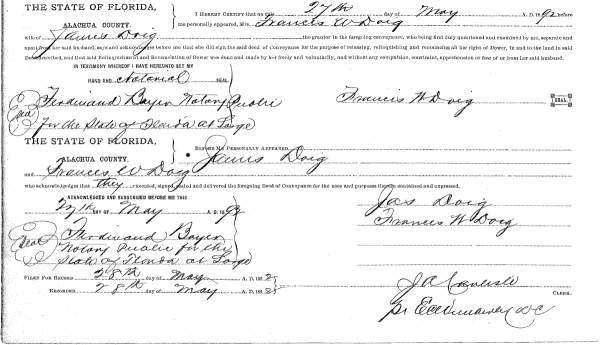 THE STATE OF FLORIDA,
ALACHUA COUNTY.
I HEREBY CERTIFY that on this 27th day of May A. D. 1892 before
me personally appeared, Mrs. Francis W Doig
wife of James Doig the grantor in the foregoing conveyance, who being first duly questioned and examined by me, separate and
apart from her said husband, says and acknowledges before me that she did sign the said deed of Conveyance for the purpose of releasing, relinquishing and renouncing all her right of Dower, in and to the land in said
Deed described, and that said Relinquishment and Renunciation of Dower was made and done by her freely and voluntarily, and without any compulsion, constraint, apprehension or fear of or from her said husband.
IN TESTIMONY WHEREOF I HAVE HEREUNTO SET MY
HAND AND Notarial SEAL.
Seal
Ferdinand Bayer Notary Public
for the State of Florida at Large
Francis W Doig
SEAL
THE STATE OF FLORIDA,
ALACHUA COUNTY.
BEFORE ME PERSONALLY APPEARED James Doig
and Frances W Doig
who acknowledges that they executed, signed, sealed and delivered the foregoing Deed of Conveyance for the uses and purposes therein contained and expressed.
ACKNOWLEDGED AND SUBSCRIBED BEFORE ME THIS
27th DAY OF May A. D. 1892
Jas Doig
Francis W Doig
Seal
Ferdinand Bayer
Notary Public for the
State of Florida at Large
FILED FOR RECORD 28th day of May A. D. 1892
RECORDED 28th day of May A. D. 1892
J A Carlisle
CLERK.
DC